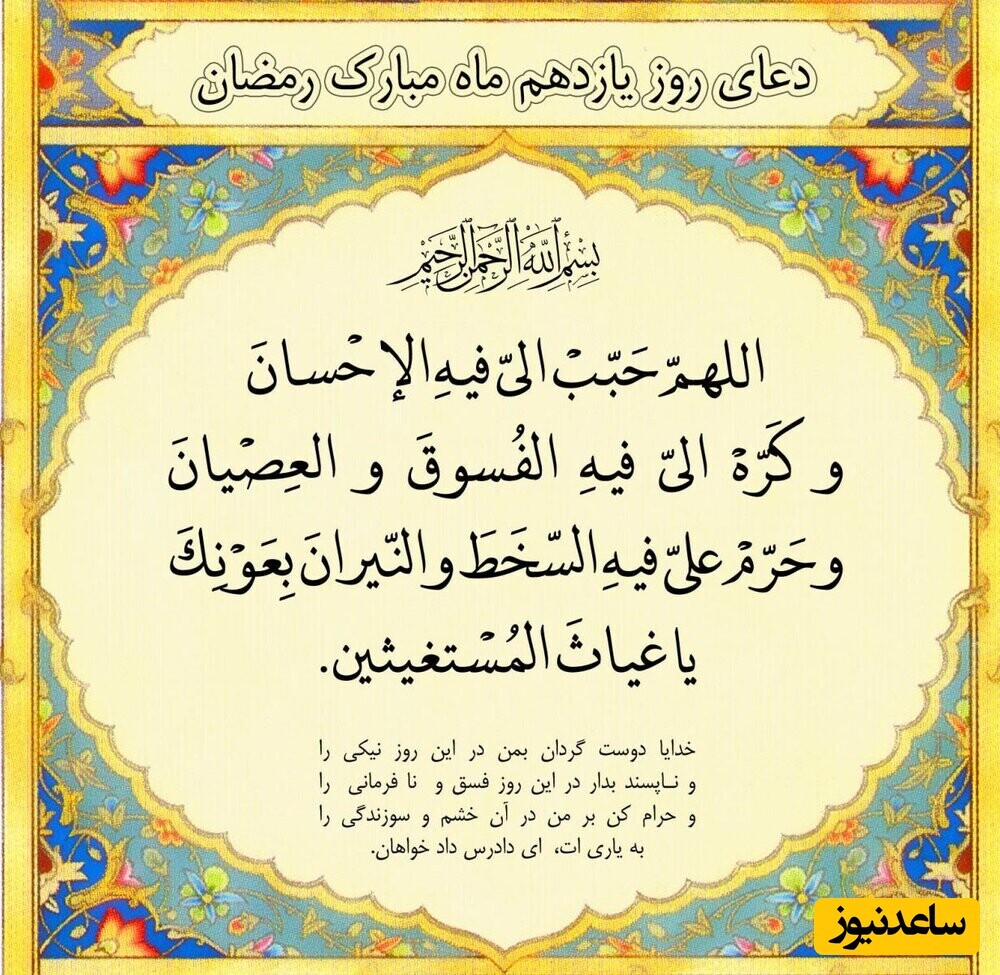 دعای روز یازدهم ماه مبارک رمضان
بِسْمِ اللَّهِ الرَّحْمَنِ الرَّحِيمِ
اللهمّ حَبّبْ الیّ فیهِ الإحْسانَ
و کَرّهْ الیّ فیهِ الفُسوقَ و العِصْیانَ
وحَرّمْ علیّ فیهِ السّخَطَ والنّیرانَ بِعَوْنِكَ
یا غیاثَ المُسْتغیثین.
خدایا دوست گردان بمن در این روز نیکی را
و ناپسند بدار در این روز فسق و نا فرمانی را
و حرام کن بر من در آن خشم و سوزندگی را
به یاری ات، ای دادرس داد خواهان.
ساعدنیوز